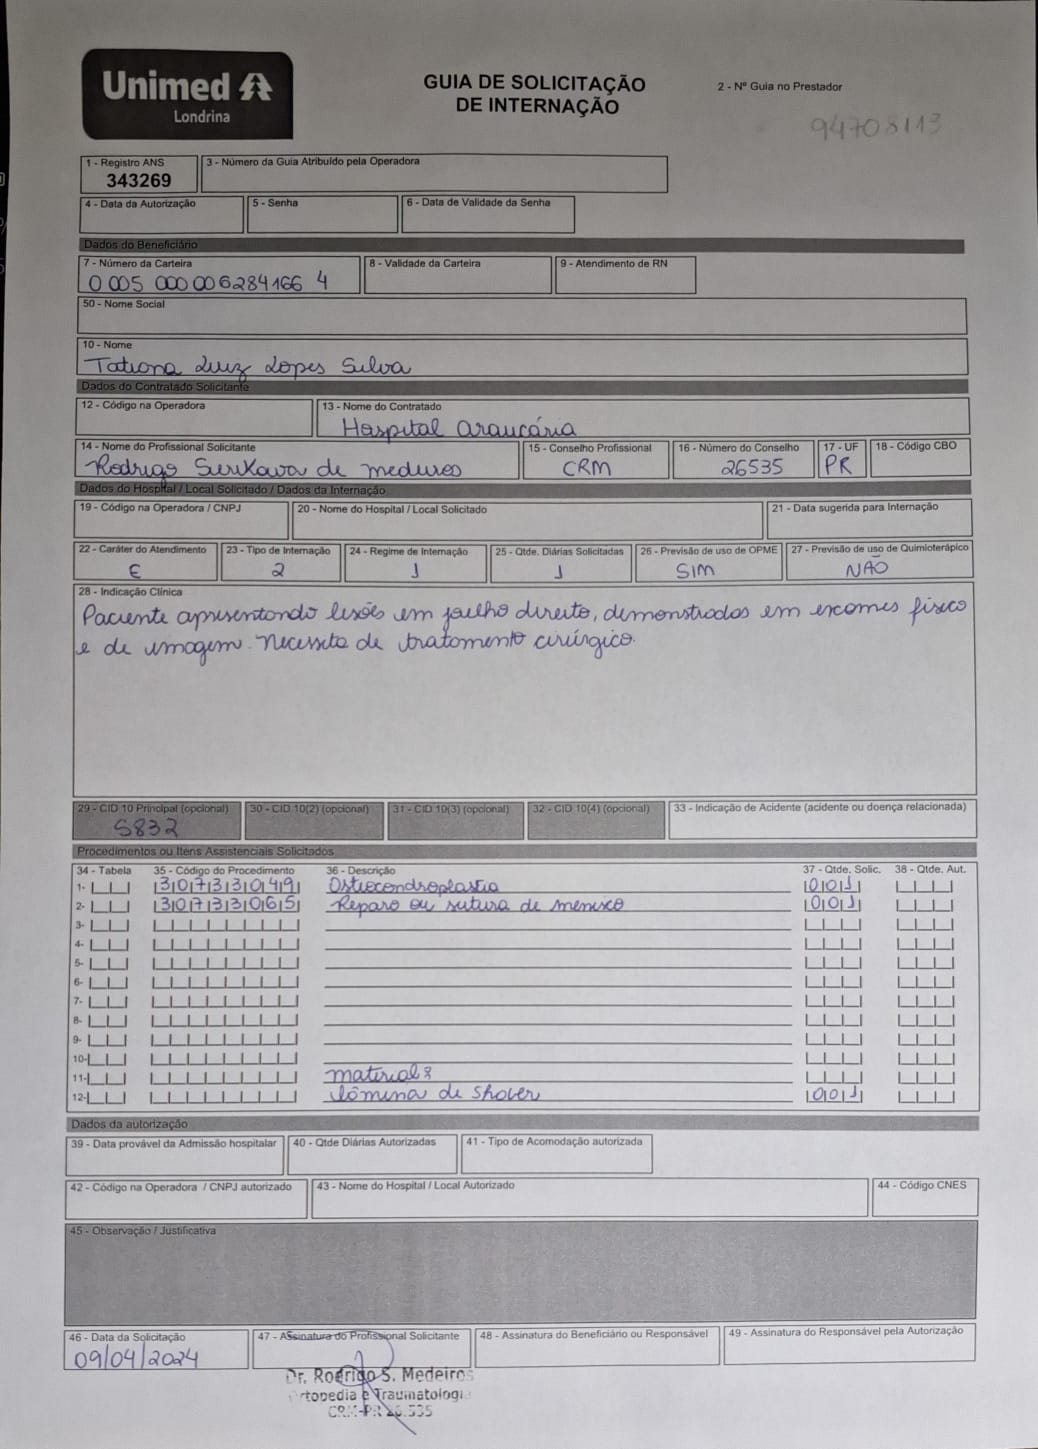 Unimed
Londrina
GUIA DE SOLICITAÇÃO
DE INTERNAÇÃO
2 - Nº Guia no Prestador
94708113
1 - Registro ANS
343269
3 - Número da Guia Atribuído pela Operadora
4 - Data da Autorização
5 - Senha
6 - Data de Validade da Senha
Dados do Beneficiário
7 - Número da Carteira
0 005 000006284166 4
8 - Validade da Carteira
9 - Atendimento de RN
50 - Nome Social
10 - Nome
Tatiana Luiz Lopes Silva
Dados do Contratado Solicitante
12 - Código na Operadora
13 - Nome do Contratado
Hospital Araucária
14 - Nome do Profissional Solicitante
Rodrigo Serikava de medeiros
15 - Conselho Profissional
CRM
16 - Número do Conselho
26535
17 - UF
PR
18 - Código CBO
Dados do Hospital / Local Solicitado / Dados da Internação
19 - Código na Operadora / CNPJ
20 - Nome do Hospital / Local Solicitado
21 - Data sugerida para Internação
22 - Caráter do Atendimento
E
23 - Tipo de Internação
2
24 - Regime de Internação
1
25 - Qtde. Diárias Solicitadas
1
26 - Previsão de uso de OPME
SIM
27 - Previsão de uso de Quimioterápico
NÃO
28 - Indicação Clínica
Paciente apresentando lesões em joelho direito, demonstradas em exames físico
e de imagem. Necessita de tratamento cirúrgico.
29 - CID 10 Principal (opcional)
S832
30 - CID 10(2) (opcional)
31 - CID 10(3) (opcional)
32 - CID 10(4) (opcional)
33 - Indicação de Acidente (acidente ou doença relacionada)
Procedimentos ou Itens Assistenciais Solicitados
34 - Tabela 35 - Código do Procedimento 36 - Descrição 37 - Qtde. Solic. 38 - Qtde. Aut.
1- 30733049 Osteocondroplastia 001
2- 30733065 Reparo ou sutura de menisco 001
3-
4-
5-
6-
7-
8-
9-
10-
11- material:
12- Lâmina de Shaver 001
Dados da autorização
39 - Data provável da Admissão hospitalar
40 - Qtde Diárias Autorizadas
41 - Tipo de Acomodação autorizada
42 - Código na Operadora / CNPJ autorizado
43 - Nome do Hospital / Local Autorizado
44 - Código CNES
45 - Observação / Justificativa
46 - Data da Solicitação
09/04/2024
47 - Assinatura do Profissional Solicitante
48 - Assinatura do Beneficiário ou Responsável
49 - Assinatura do Responsável pela Autorização
Dr. Rodrigo S. Medeiros
Ortopedia e Traumatologia
CRM-PR 26.535